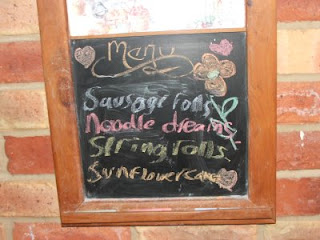 Menu
Sausage rolls
Noodle dreams
String rolls
Sunflower cakes